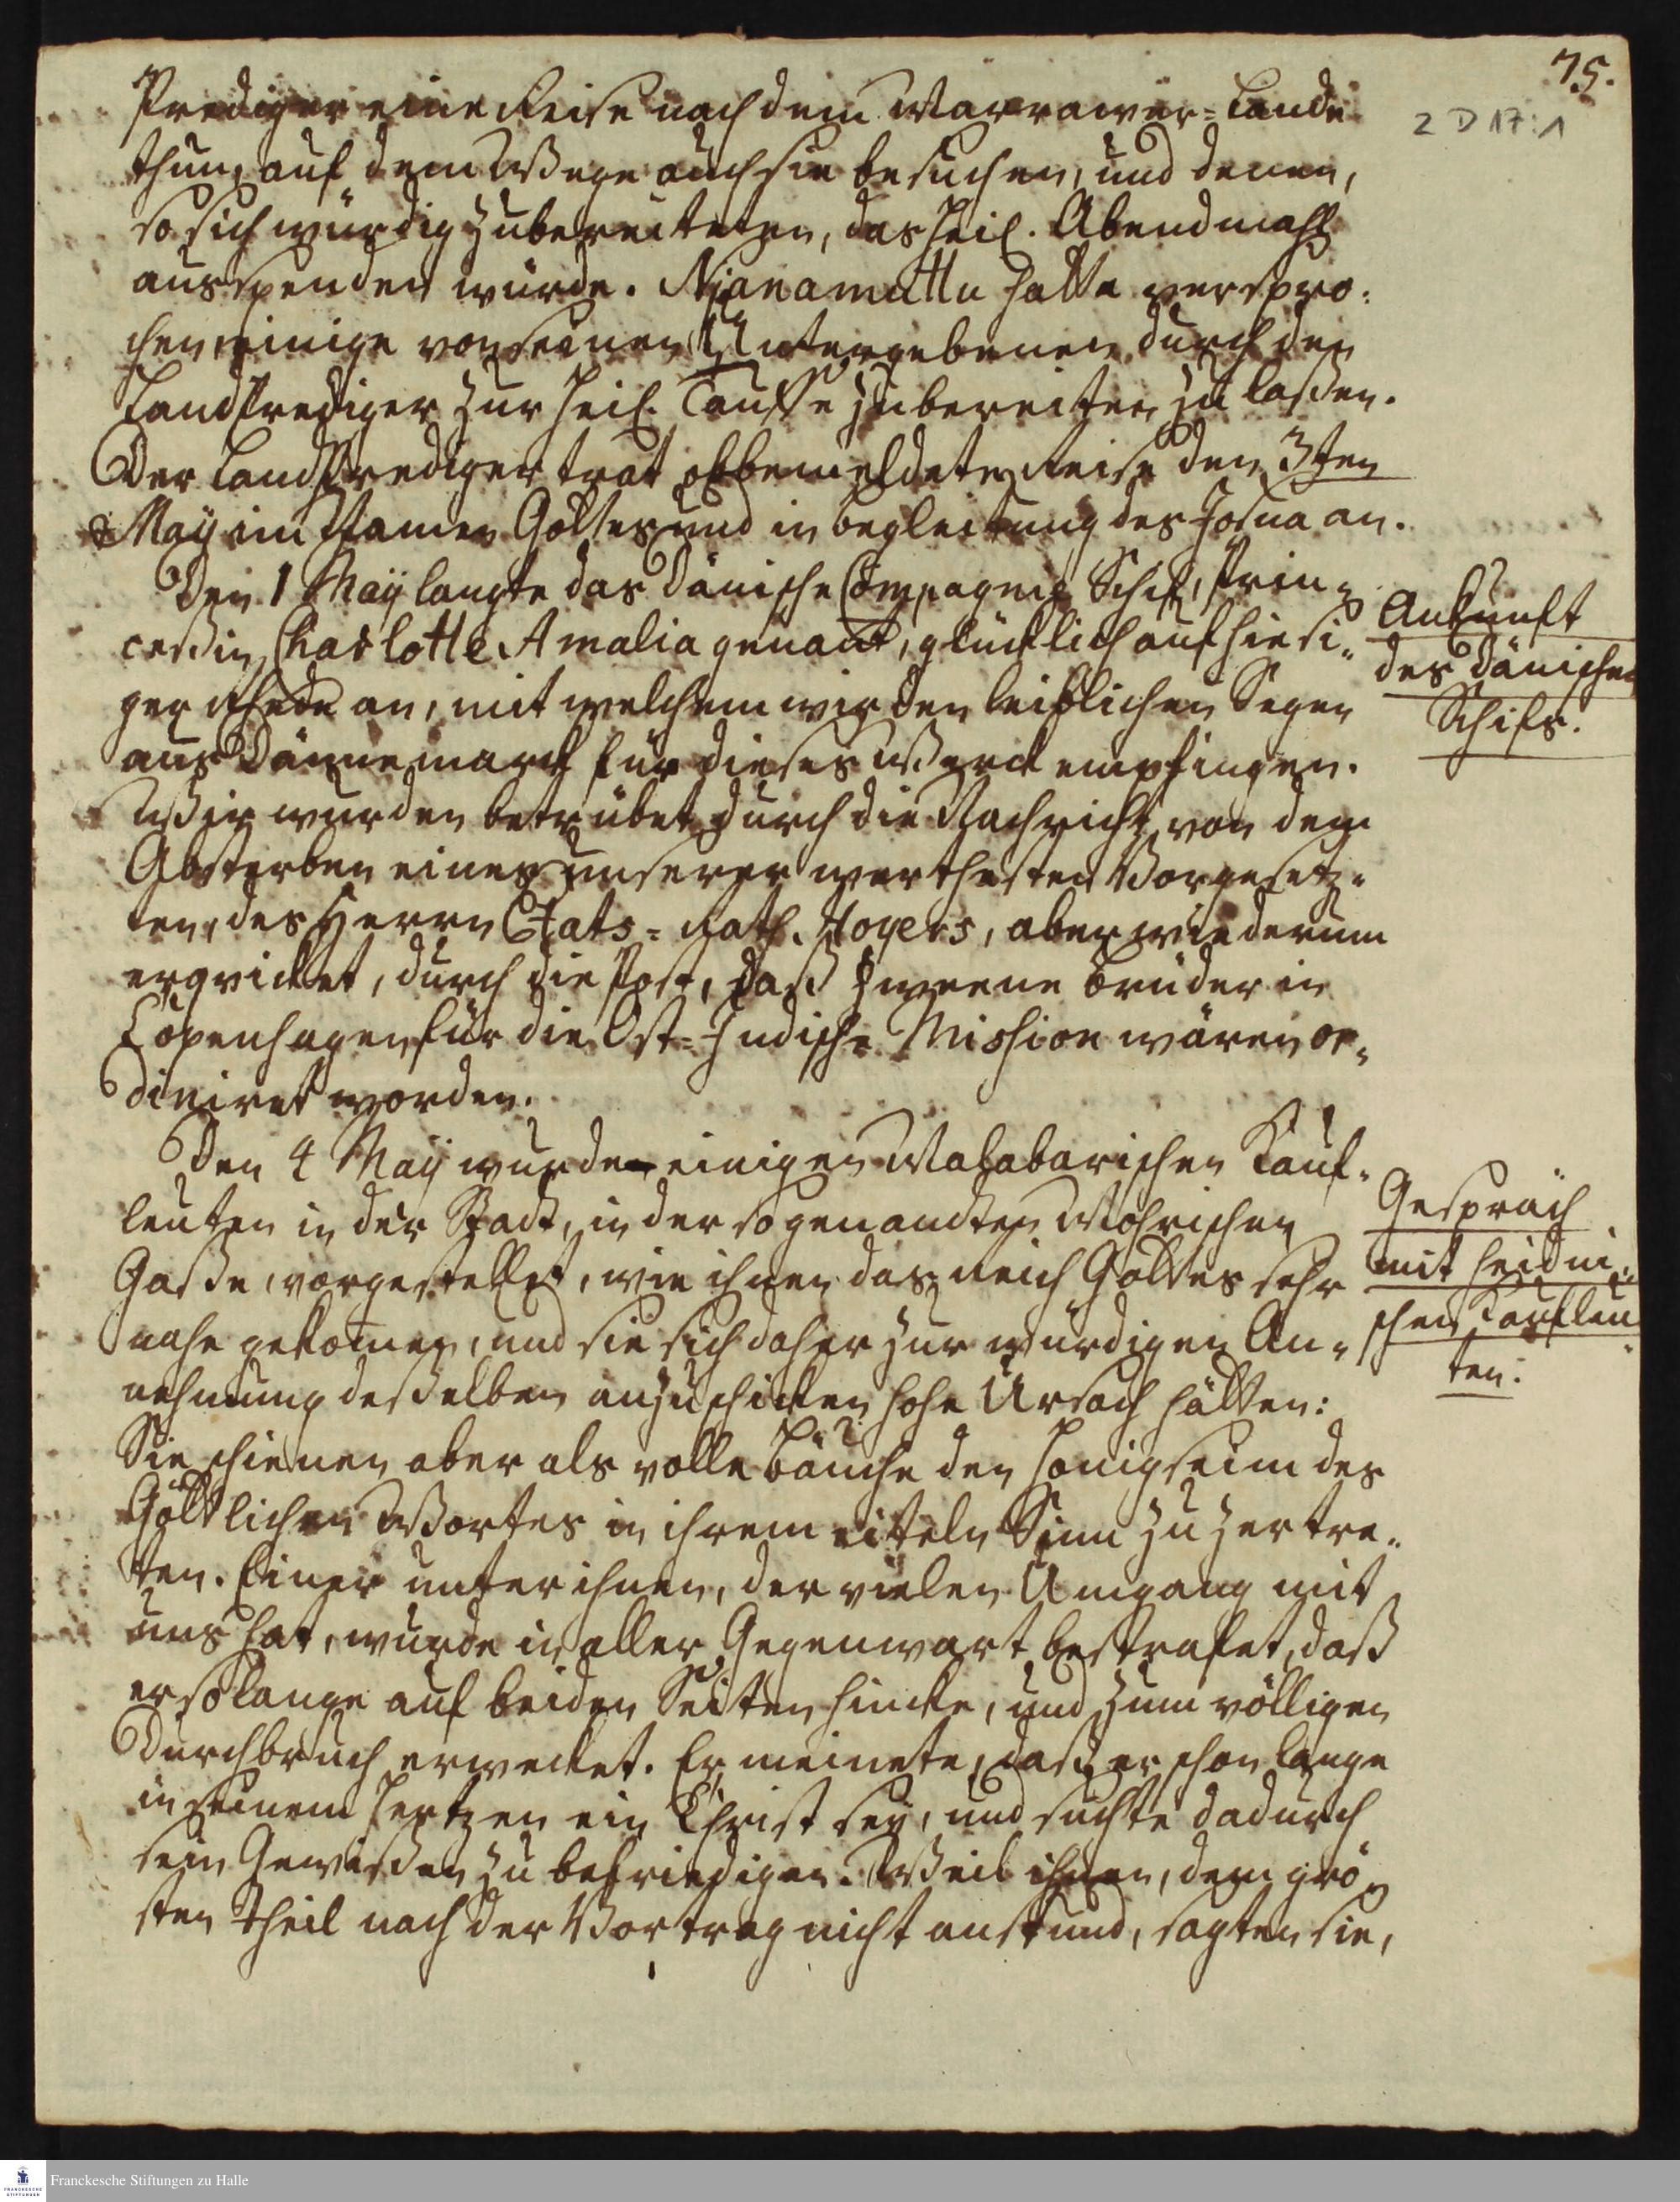 75.
2 D 17:1
Prediger eine Reise nach dem Marrawer=Lande
thun, auf dem Wege auch sie besuchen, und denen,
so sich würdig zubereiteten, das heil. Abendmahl
ausspenden würde. Njanamuttu hatte verspro-
chen einige von seinen Untergebenen durch den
Landprediger zur heil. Tauffe zubereiten zu laßen.
Der Landprediger trat obbemeldete Reise den 3ten
May im Namen Gottes und in begleitung des Josua an.
Den 1 May langte das Dänische Compagnie Schif, Prin-
ceßin Charlotte Amalia genant, glücklich auf hiesi-
ger Rhede an, mit welchem wir den leiblichen Segen
aus Dännemarck für dieses Werck empfingen.
Wir wurden betrübet durch die Nachricht von dem
Absterben eines unserer werthesten Vorgesetz-
ten, des Herrn Etats=Rath. Hoyers, aber wiederum
erqvicket, durch die Post, daß zweene Brüder in
Copenhagen für die Ost=Indische Mission wären or-
diniret worden.
Ankunft
des Dänischen
Schifs.
Den 4 May wurde einigen Malabarischen Kauf-
leuten in der Stadt, in der sogenandten Mohrischen
Gaße, vorgestellet, wie ihnen das Reich Gottes sehr
nahe gekomen, und sie sich daher zur würdigen An-
nehmung deßelben anzuschicken hohe Ursach hätten:
Sie schienen aber als volle Bäuche den Honigseim des
Göttlichen Wortes in ihrem eiteln Sinn zu zertre-
ten. Einer unter ihnen, der vielen Umgang mit
uns hat, wurde in aller Gegenwart bestrafet, daß
er solange auf beiden Seiten hincke, und zum völligen
Durchbruch erwecket. Er meinete, daß er schon lange
in seinem Hertzen ein Christ sey, und suchte dadurch
sein Gewißen zu befriedigen. Weil ihnen, dem grö-
sten Theil nach der Vortrag nicht anstund, sagten sie,
Gespräch
mit heidni-
schen Kaufleu-
ten.
Franckesche Stiftungen zu Halle
FRANCKESCHE
STIFTUNGEN